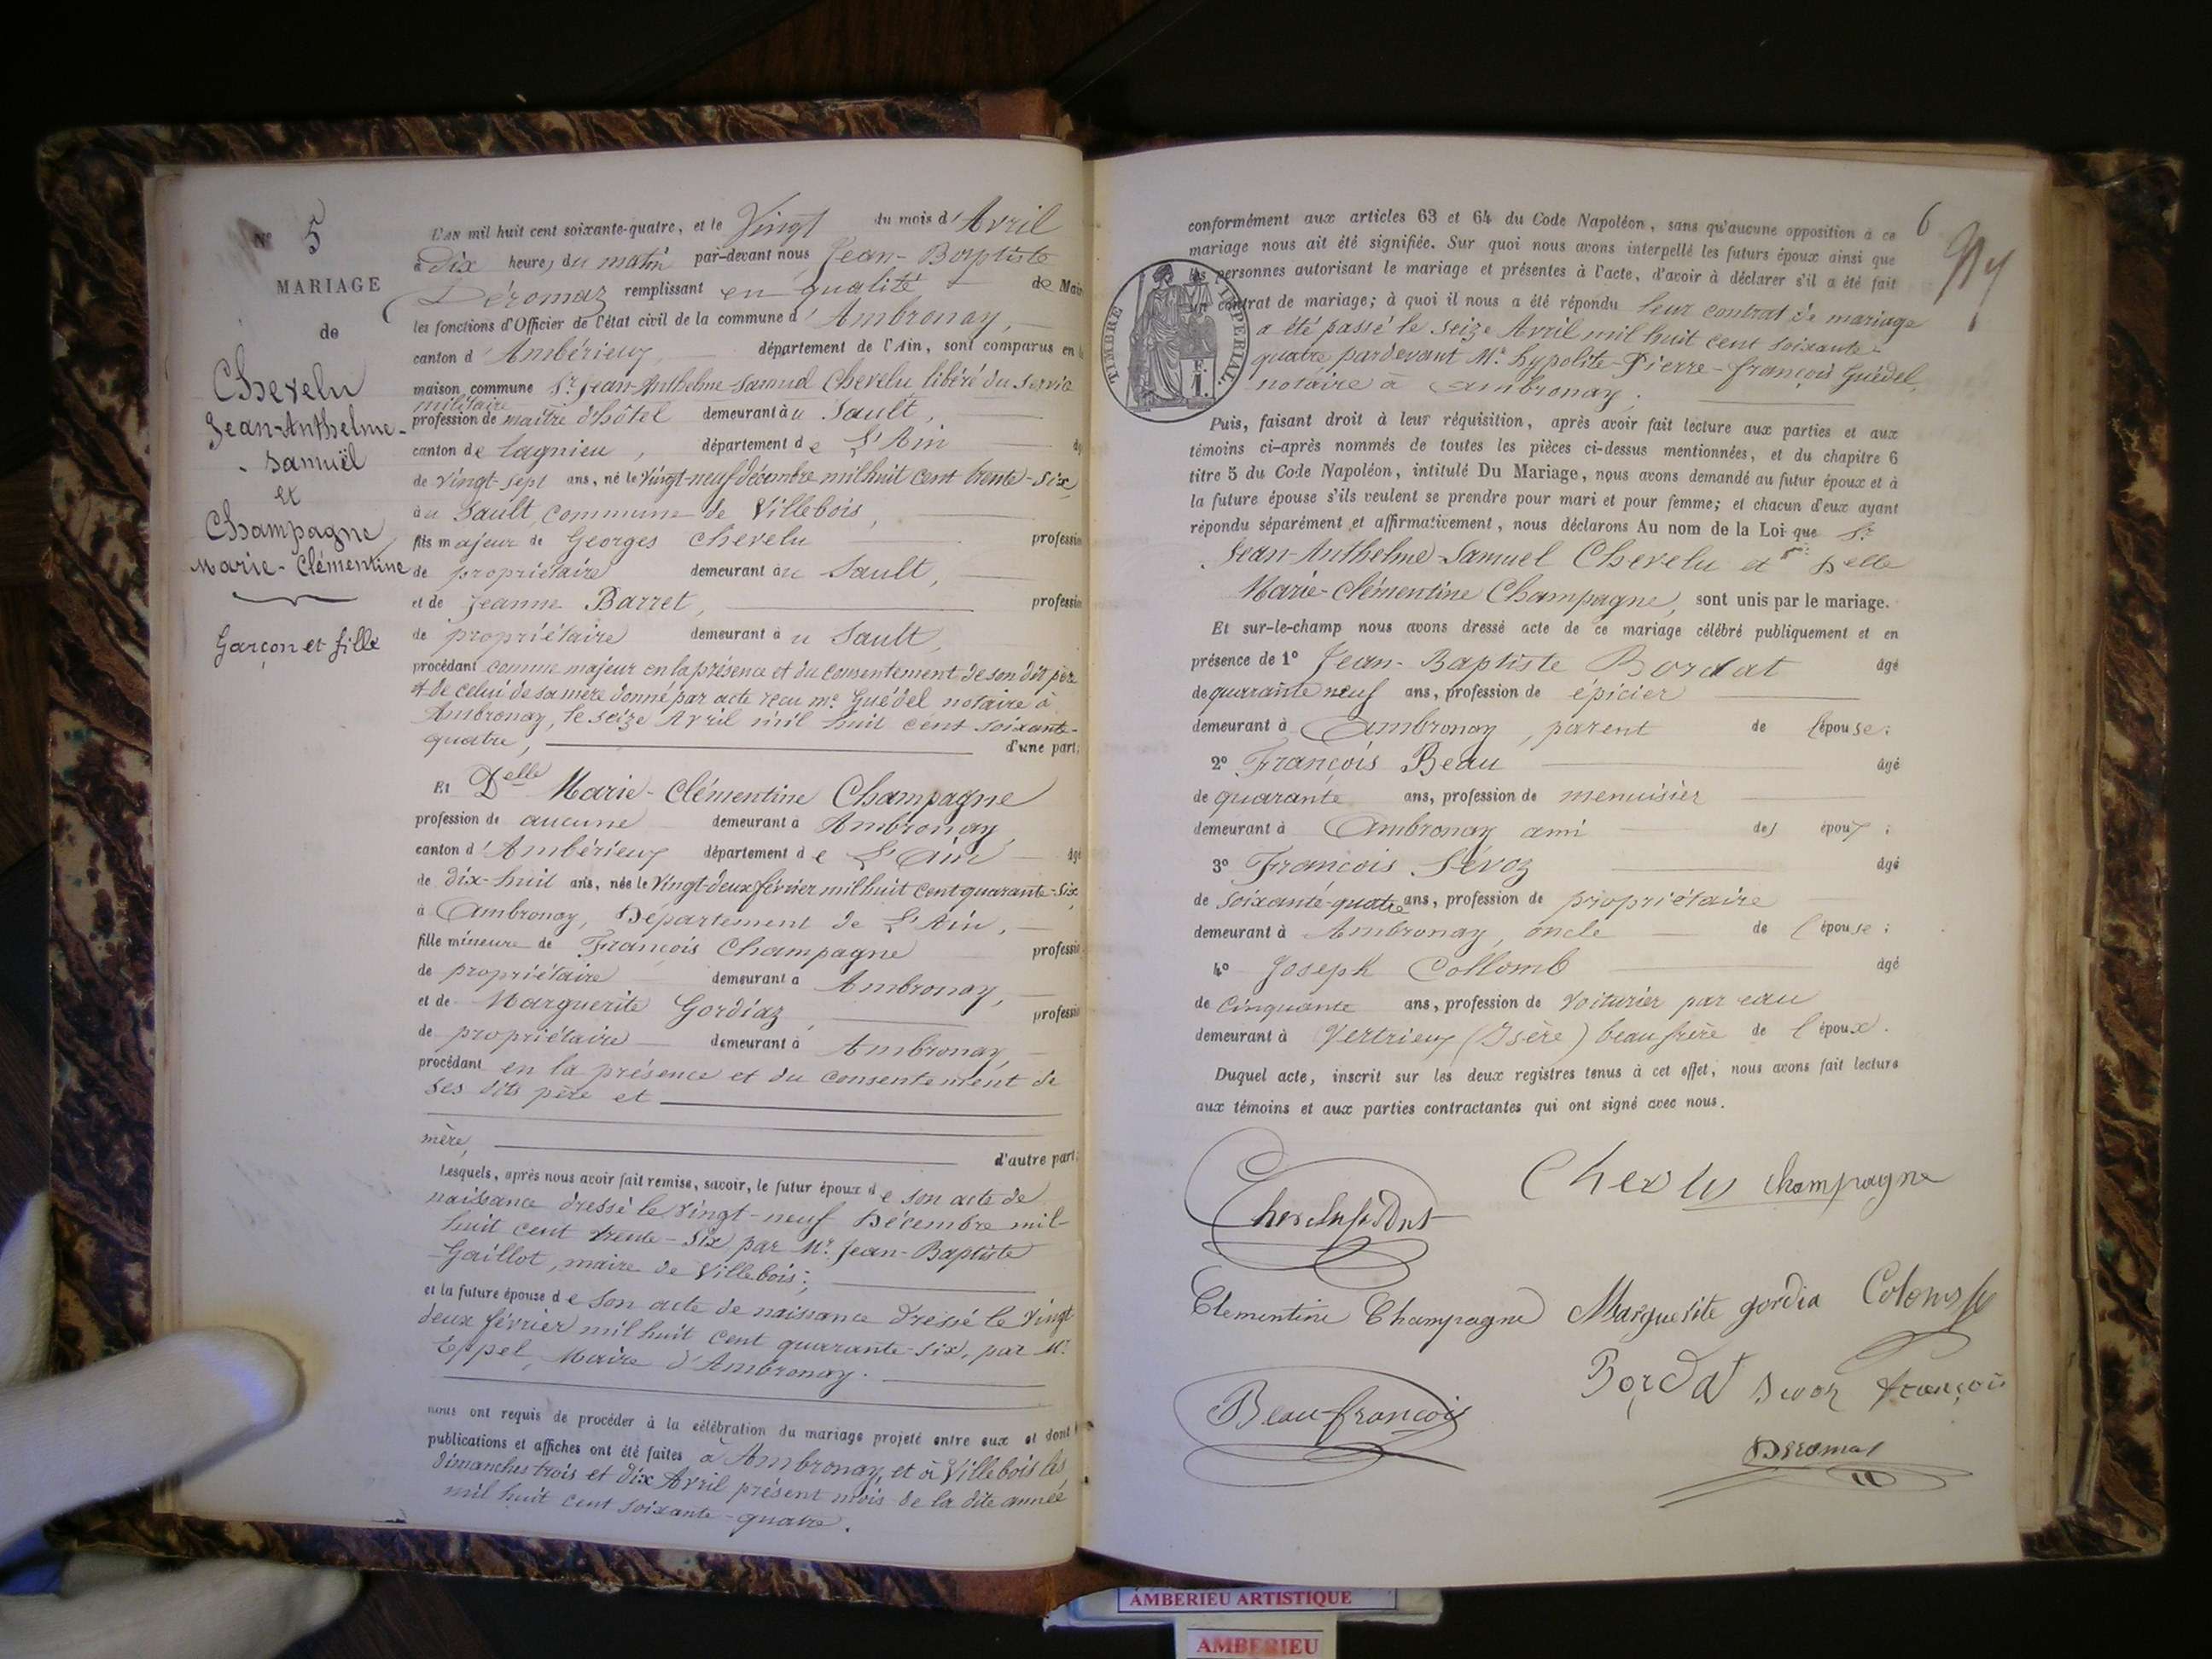 N° 5
MARIAGE
de
Chevelu
Jean-Anthelme-
Samuël
et
Champagne
Marie-Clémentine
Garçon et fille
L'AN mil huit cent soixante-quatre, et le Vingt du mois d'Avril
à Dix heures du matin par-devant nous Jean-Baptiste
Déromaz remplissant en qualité de Mai
les fonctions d'Officier de l'état civil de la commune d'Ambronay,
canton d'Ambérieux département de l'Ain, sont comparus en l
maison commune Sr Jean-Anthelme-Samuel Chevelu libéré du service
militaire
profession de maître d'hôtel demeurant au Sault,
canton de Lagnieu, département de L'Ain âg
de Vingt-sept ans, né le Vingt-neuf décembre mil huit cent trente-six
au Sault, commune de Villebois,
fils majeur de Georges Chevelu professio
de propriétaire demeurant au Sault,
et de Jeanne Barret, professio
de propriétaire demeurant au Sault,
procédant comme majeur en la présence et du consentement de son dit père
et de celui de sa mère donné par acte reçu me Guédel notaire à
Ambronay, le seize Avril mil huit cent soixante-
quatre, d'une part;
Et Delle Marie-Clémentine Champagne
profession de aucune demeurant à Ambronay,
canton d'Ambérieux département de L'Ain âgé
de dix-huit ans, née le Vingt-deux février mil huit cent quarante-six,
à Ambronay, Département de L'Ain,
fille mineure de François Champagne professio
de propriétaire demeurant à Ambronay,
et de Marguerite Gordiaz, professio
de propriétaire demeurant à Ambronay,
procédant en la présence et du consentement de
ses dits père et
mère, d'autre part;
Lesquels, après nous avoir fait remise, savoir, le futur époux de son acte de
naissance dressé le Vingt-neuf Décembre mil-
huit cent trente-six par Mr. Jean-Baptiste
Gaillot, maire de Villebois;
et la future épouse de son acte de naissance dressé le Vingt
deux février mil huit cent quarante-six, par Mr.
Eppel, Maire d'Ambronay.
nous ont requis de procéder à la célébration du mariage projeté entre eux et dont
publications et affiches ont été faites à Ambronay, et à Villebois les
dimanches trois et dix Avril présent mois de la dite année
mil huit cent soixante-quatre.
6
conformément aux articles 63 et 64 du Code Napoléon, sans qu'aucune opposition à ce
mariage nous ait été signifiée. Sur quoi nous avons interpellé les futurs époux ainsi que
les personnes autorisant le mariage et présentes à l'acte, d'avoir à déclarer s'il a été fait
un contrat de mariage; à quoi il nous a été répondu leur contrat de mariage
a été passé le seize Avril mil huit cent soixante-
quatre pardevant Mr. hypolite-Pierre-françois Guédel,
notaire à Ambronay.
TIMBRE IMPERIAL
1 F.
Puis, faisant droit à leur réquisition, après avoir fait lecture aux parties et aux
témoins ci-après nommés de toutes les pièces ci-dessus mentionnées, et du chapitre 6
titre 5 du Code Napoléon, intitulé Du Mariage, nous avons demandé au futur époux et à
la future épouse s'ils veulent se prendre pour mari et pour femme; et chacun d'eux ayant
répondu séparément et affirmativement, nous déclarons Au nom de la Loi que Sr.
Jean-Anthelme-Samuel Chevelu et Delle
Marie-Clémentine Champagne, sont unis par le mariage.
Et sur-le-champ nous avons dressé acte de ce mariage célébré publiquement et en
présence de 1° Jean-Baptiste Bordat âgé
de quarante neuf ans, profession de épicier
demeurant à Ambronay, parent de l'épouse;
2° François Beau âgé
de quarante ans, profession de menuisier
demeurant à Ambronay ami des époux;
3° François Sévoz âgé
de soixante-quatre ans, profession de propriétaire
demeurant à Ambronay, oncle de l'épouse;
4° Joseph Collomb âgé
de Cinquante ans, profession de Voiturier par eau
demeurant à Vertrieux (Isère) beau frère de l'époux.
Duquel acte, inscrit sur les deux registres tenus à cet effet, nous avons fait lecture
aux témoins et aux parties contractantes qui ont signé avec nous.
Chevelu champagne
Clementine Champagne Marguerite gordia
Beau françois Bordat sevoz françois
Deromaz
AMBERIEU ARTISTIQUE
AMBERIEU